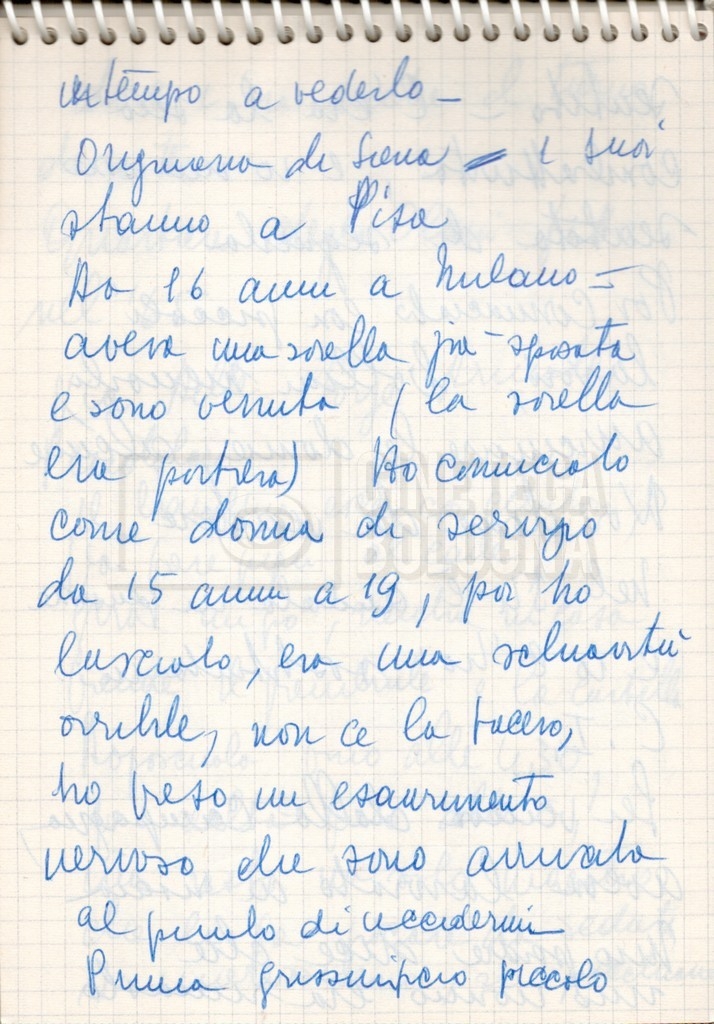 intempo a vederlo -
Originaria di Siena - i suoi
stanno a Pisa
Ho 16 anni a Milano -
avevo una sorella già sposata
e sono venuta (la sorella
era portiera) Ho cominciato
come donna di servizio
da 15 anni a 19, poi ho
lasciato, era una schiavitù
orribile, non ce la facevo,
ho preso un esaurimento
nervoso che sono arrivata
al punto di uccidermi
Prima piccolo
CINETECA
BOLOGNA